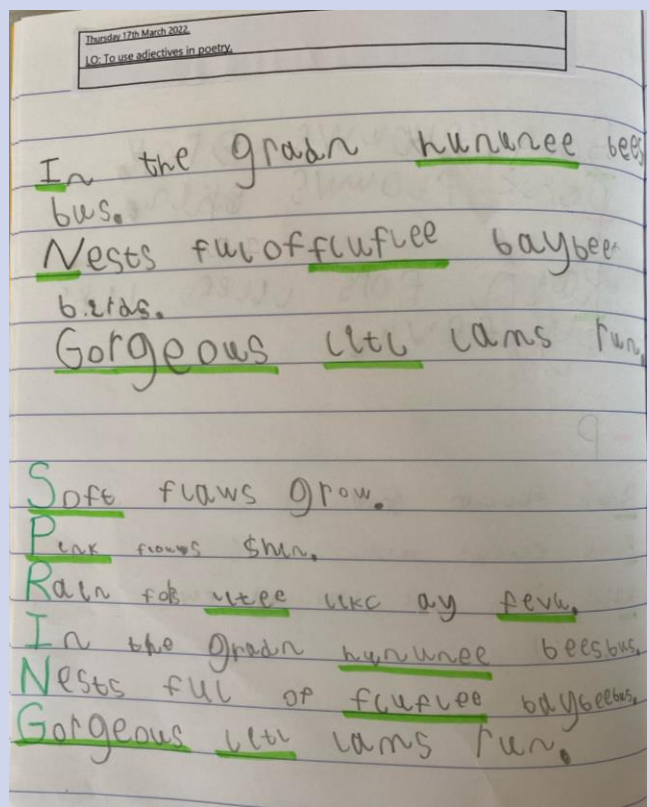 Thursday 17th March 2022
LO: To use adjectives in poetry.
In the gradn hununee bees
bus.
Nests ful of fluflee baybee
birds.
Gorgeous litl lams run.
Soft flaws grow.
Pink flowus Shin.
Rain fols litee like ay fevu.
In the gradn hununee bees bus.
Nests ful of fluflee baybee bus.
Gorgeous litl lams run.